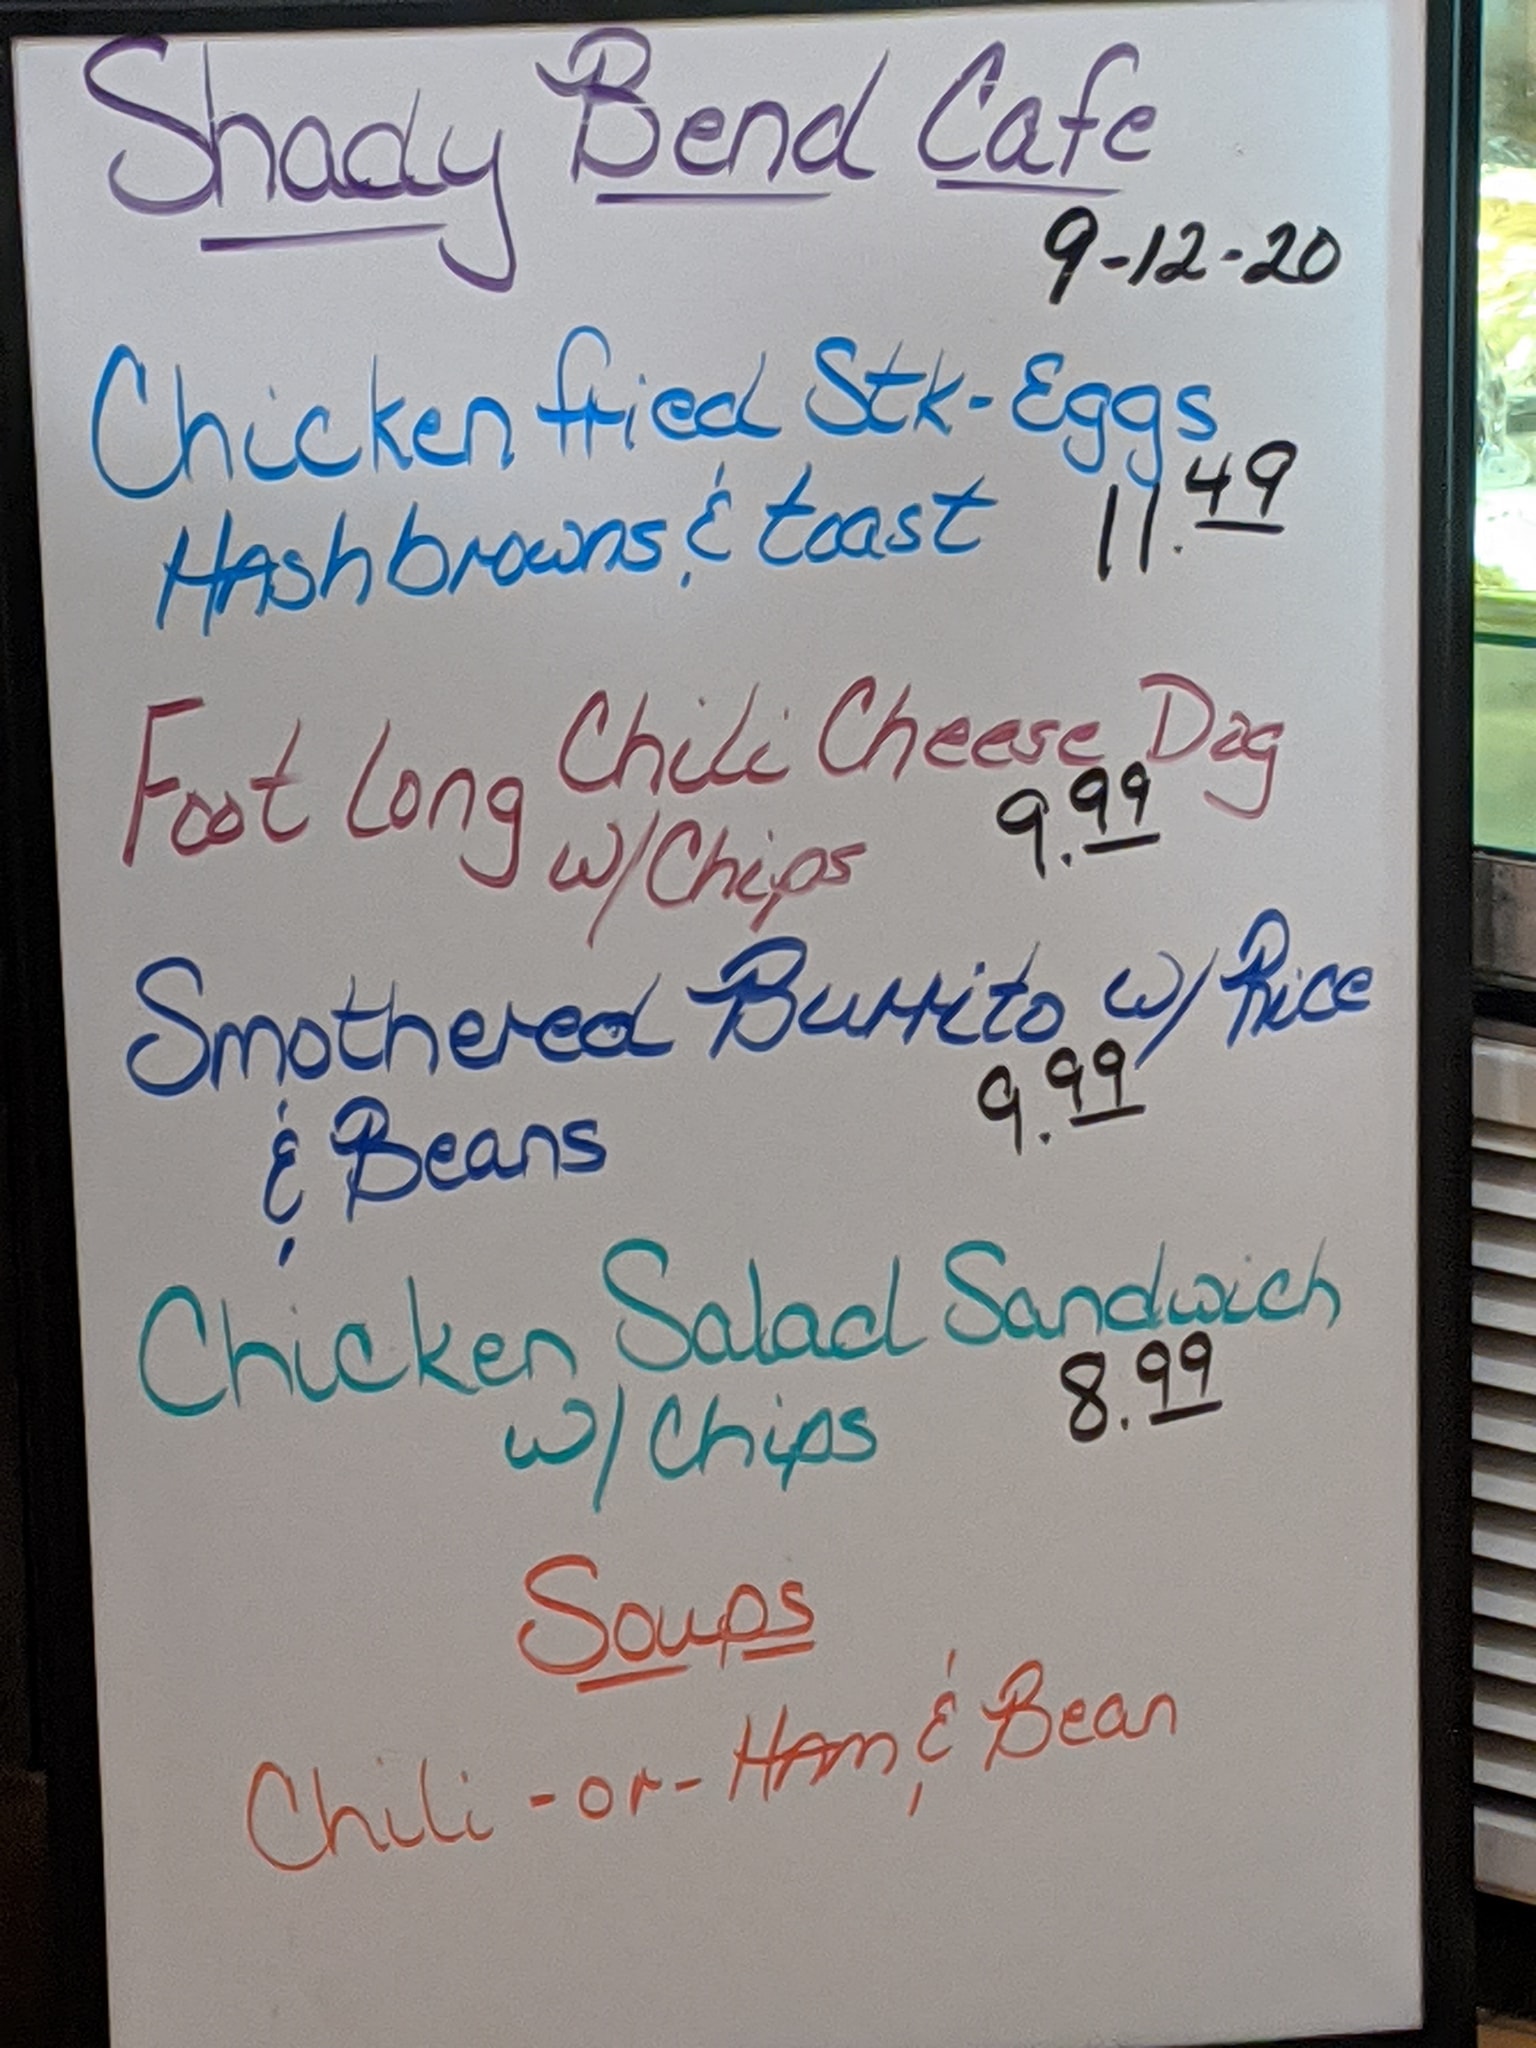 Shady Bend Cafe
9-12-20
Chicken fried Stk-Eggs
Hashbrowns & toast 11.49
Foot Long Chili Cheese Dog
w/Chips 9.99
Smothered Burrito w/ Rice
& Beans 9.99
Chicken Salad Sandwich
w/ Chips 8.99
Soups
Chili -or- Ham & Bean